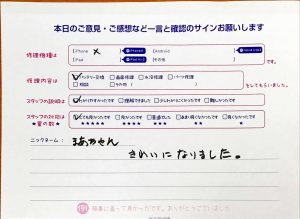 本日のご意見・ご感想など一言と確認のサインお願いします
修理機種は iPhone X Android
iPad その他
修理内容は バッテリー交換 画面修理 水没修理 パーツ修理
相談 その他 をしてもらいました。
スタッフの説明は わかりやすかったです 理解できました 少しわかりにくかったです 難しかったです
スタッフの対応は とても良かったです 良かったです 普通でした あまり良くなかったです 良くなかったです
★の数 ★★★★★ ★★★★ ★★★ ★★ ★
ニックネーム：
きれいになりました。